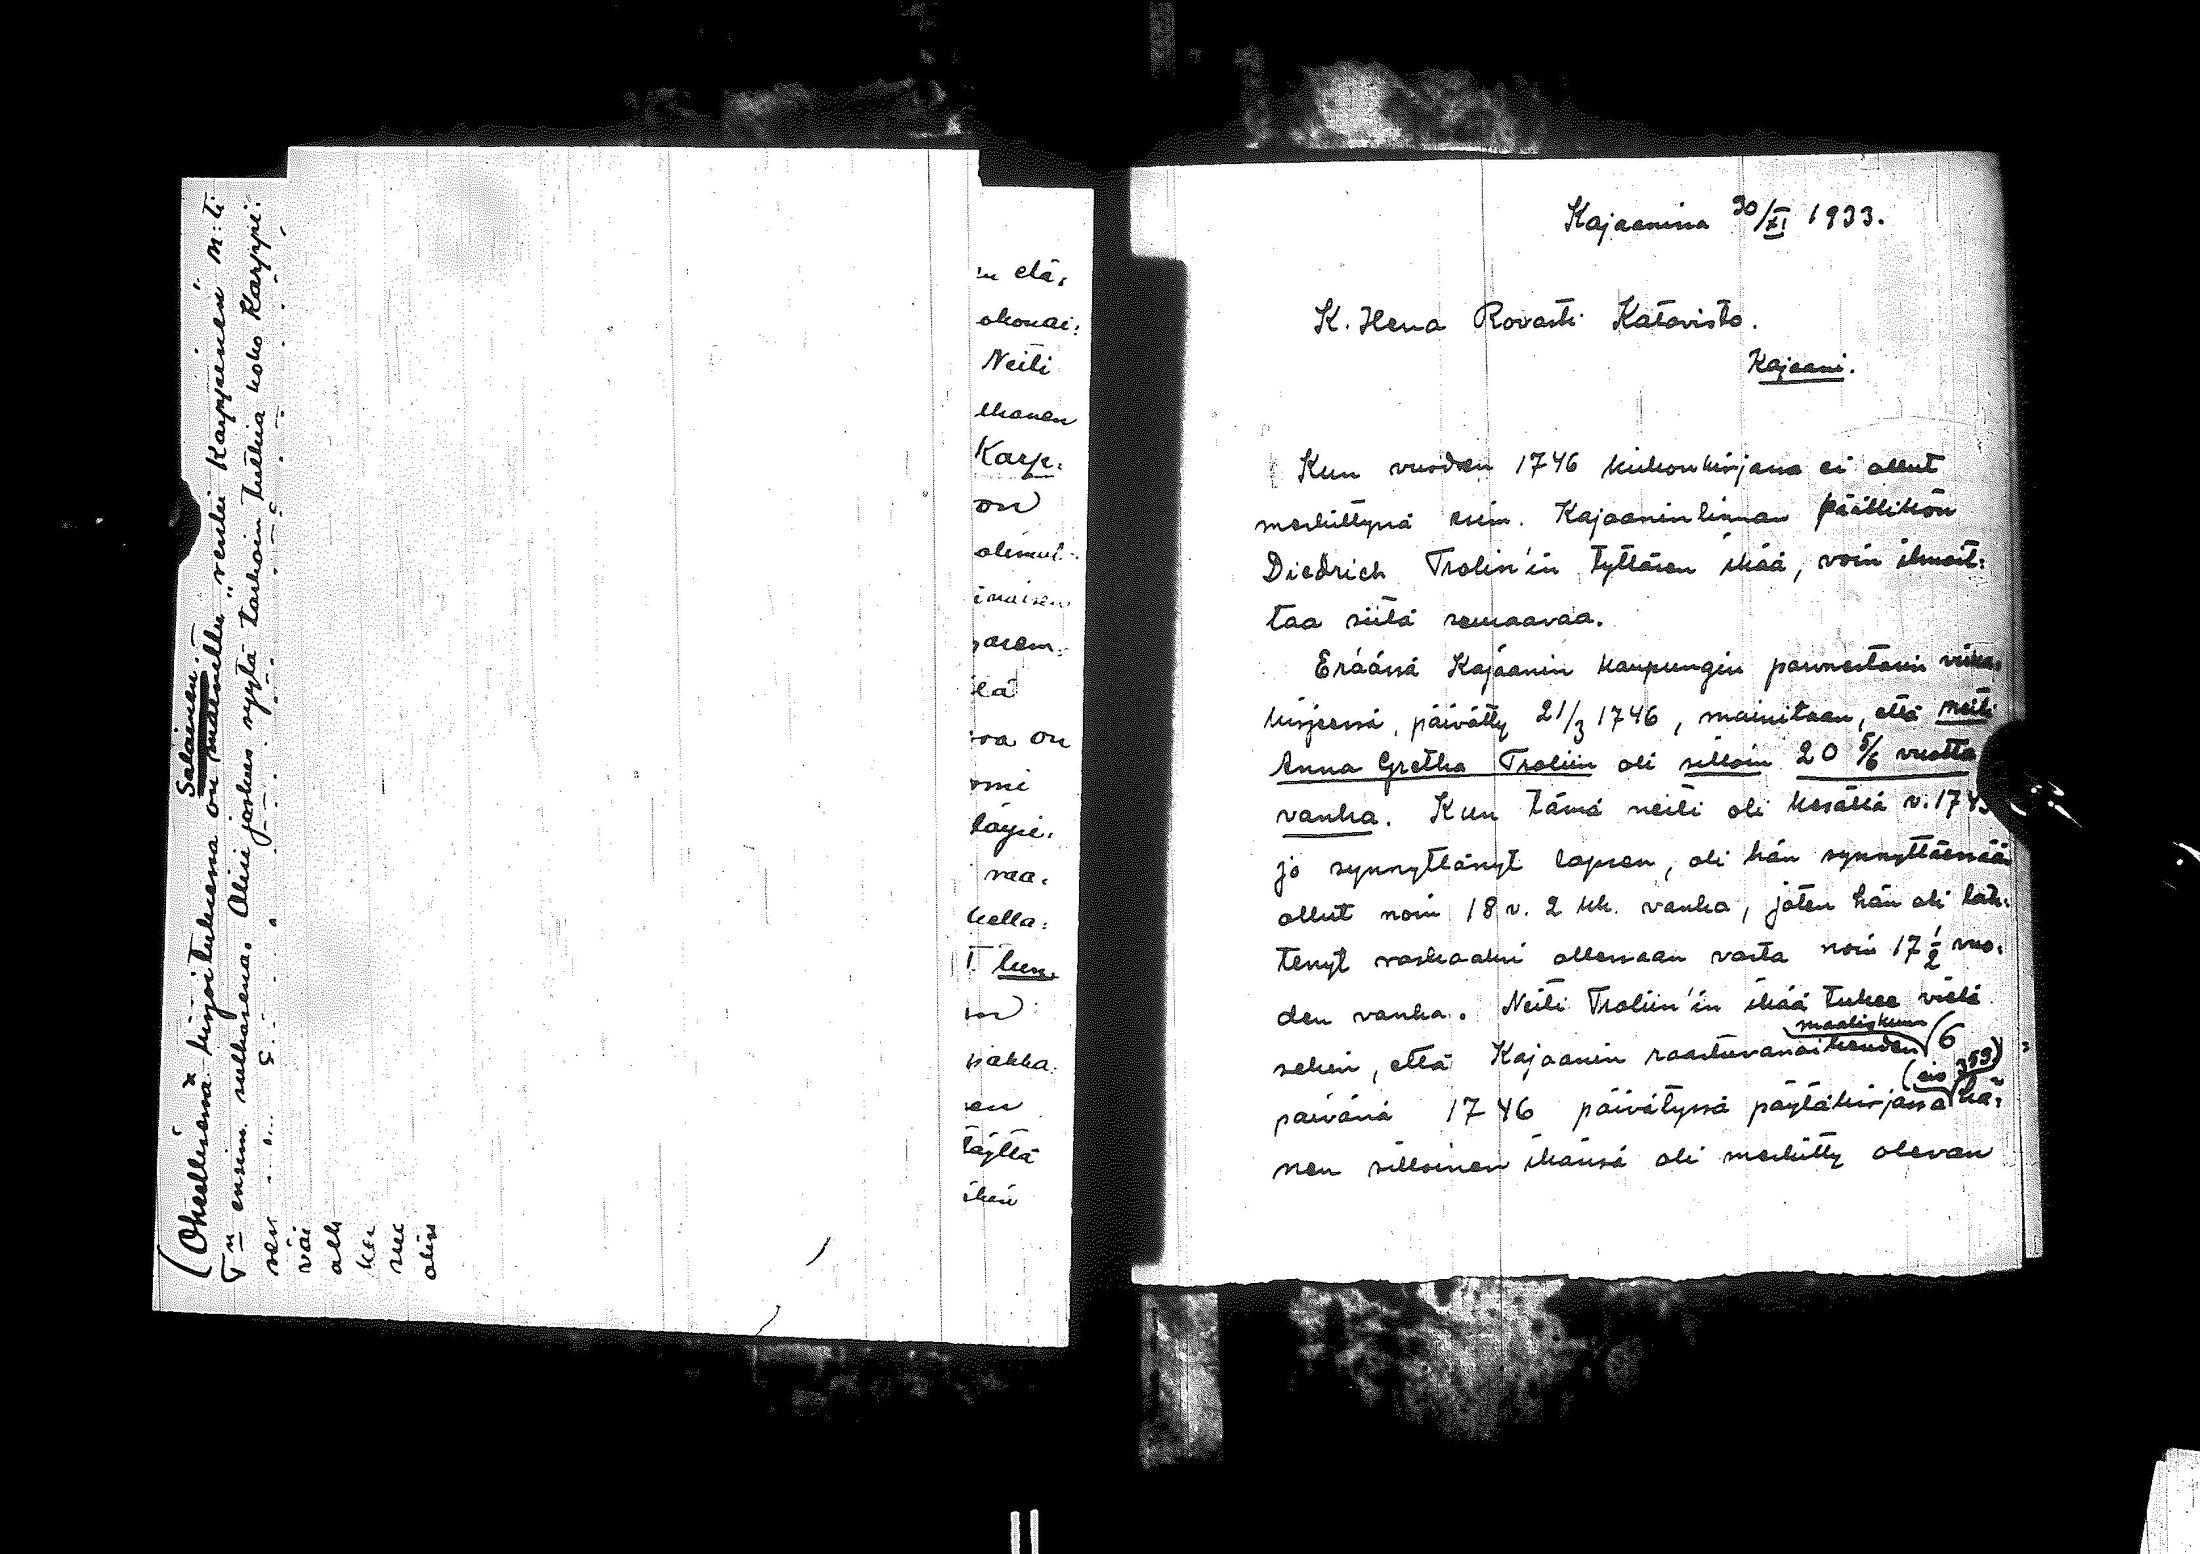 Salainen.
(Oheellisessa x kirjoituksessa on mainittu "renki Karppinen" n:ti
T<u>n</u> ensim. sulhasena. Olisi jonkun syytä tarkoin tutkia koko Karppi:
sen
väi
alk
ker
suc
oliss
n elä,
okonai:
Neiti
lhanen
Karp:
on
olimut:
inaisen
parem:
lä
va on
omi
täysi:
raa.
kella:
T. lun.
on
pakka:
en
täyttä
ihän
Kajaanissa 30/XI 1933.
K. Herra Rovasti Katavisto.
Kajaani.
Kun vuoden 1746 kirkonkirjassa ei ollut
merkittynä esim. Kajaaninlinnan päällikön
Diedrich Trolin'in tyttären ikää, voin ilmoit:
taa siitä seuraavaa.
Eräässä Kajaanin kaupungin pormestarin virka,
kirjeessä, päivätty 21/3 1746, mainitaan, että neiti
Anna Gretha Troliin oli silloin 20 5/6 vuotta
vanha. Kun tämä neiti oli kesällä v. 1743
jo synnyttänyt lapsen, oli hän synnyttäessään
ollut noin 18 v. 2 kk. vanha, joten hän oli tul:
tenyt raskaaksi ollessaan vasta noin 17 1/2 vuo:
den vanha. Neiti Troliin'in ikää tukee vielä
sekin, että Kajaanin raastuvanoikeuden maaliskuun 6
päivänä 1746 päivätyssä pöytäkirjassa (sio 353) hä:
nen silloinen ikänsä oli merkitty olevan